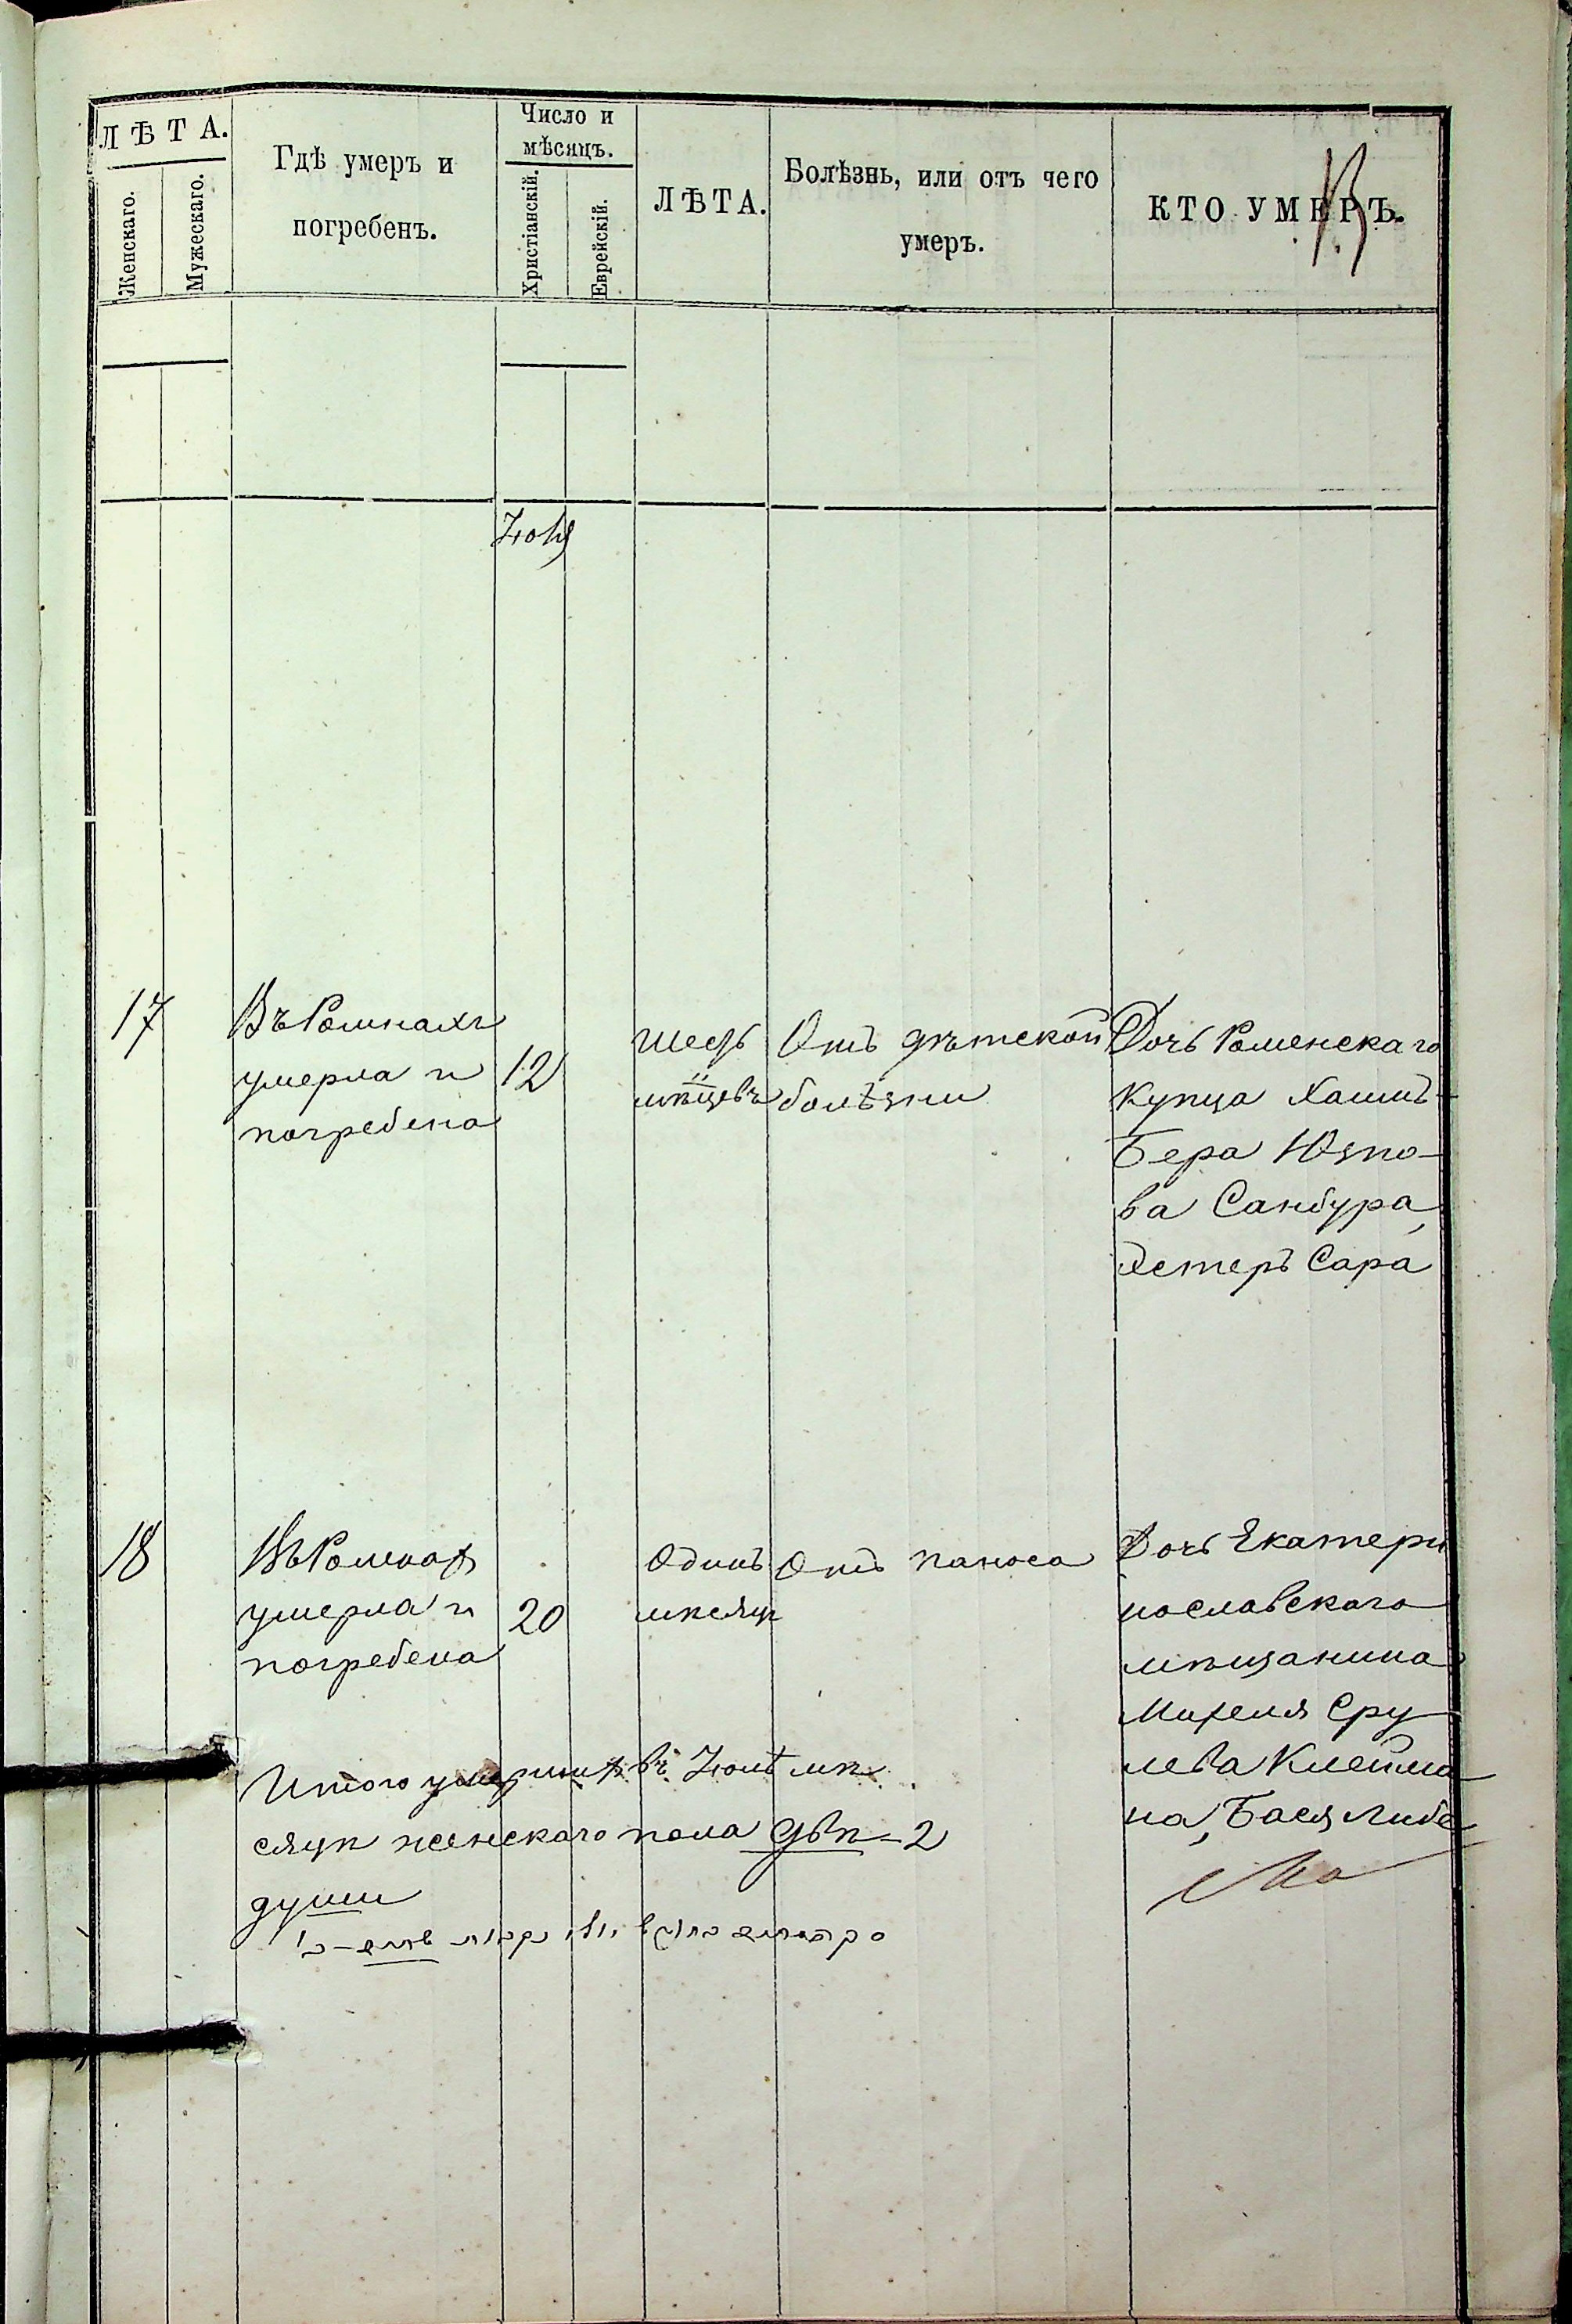 ЛѢТА.
Женскаго.
Мужескаго.
Гдѣ умеръ и
погребенъ.
Число и
мѣсяцъ.
Христіанскій.
Еврейскій.
ЛѢТА.
Болѣзнь, или отъ чего
умеръ.
КТО УМЕРЪ.
Іюля
17
Въ Ромнахъ
умерла и
погребена
12
Шесть
мѣсяцевъ
Отъ дѣтской
болѣзни
Дочь Роменскаго
купца Хаимъ-
Бера Юзпо-
ва Санбура,
Эстеръ Сара
18
Въ Ромнах
умерла и
погребена
20
Одинъ
мѣсяцъ
Отъ поноса
Дочь Екатери
нославскаго
мѣщанина
Михеля Сру
лева Клейма
на, Бася Либа
Итого умерших въ Іюлѣ мѣ
сяцѣ женскаго пола двѣ - 2
души